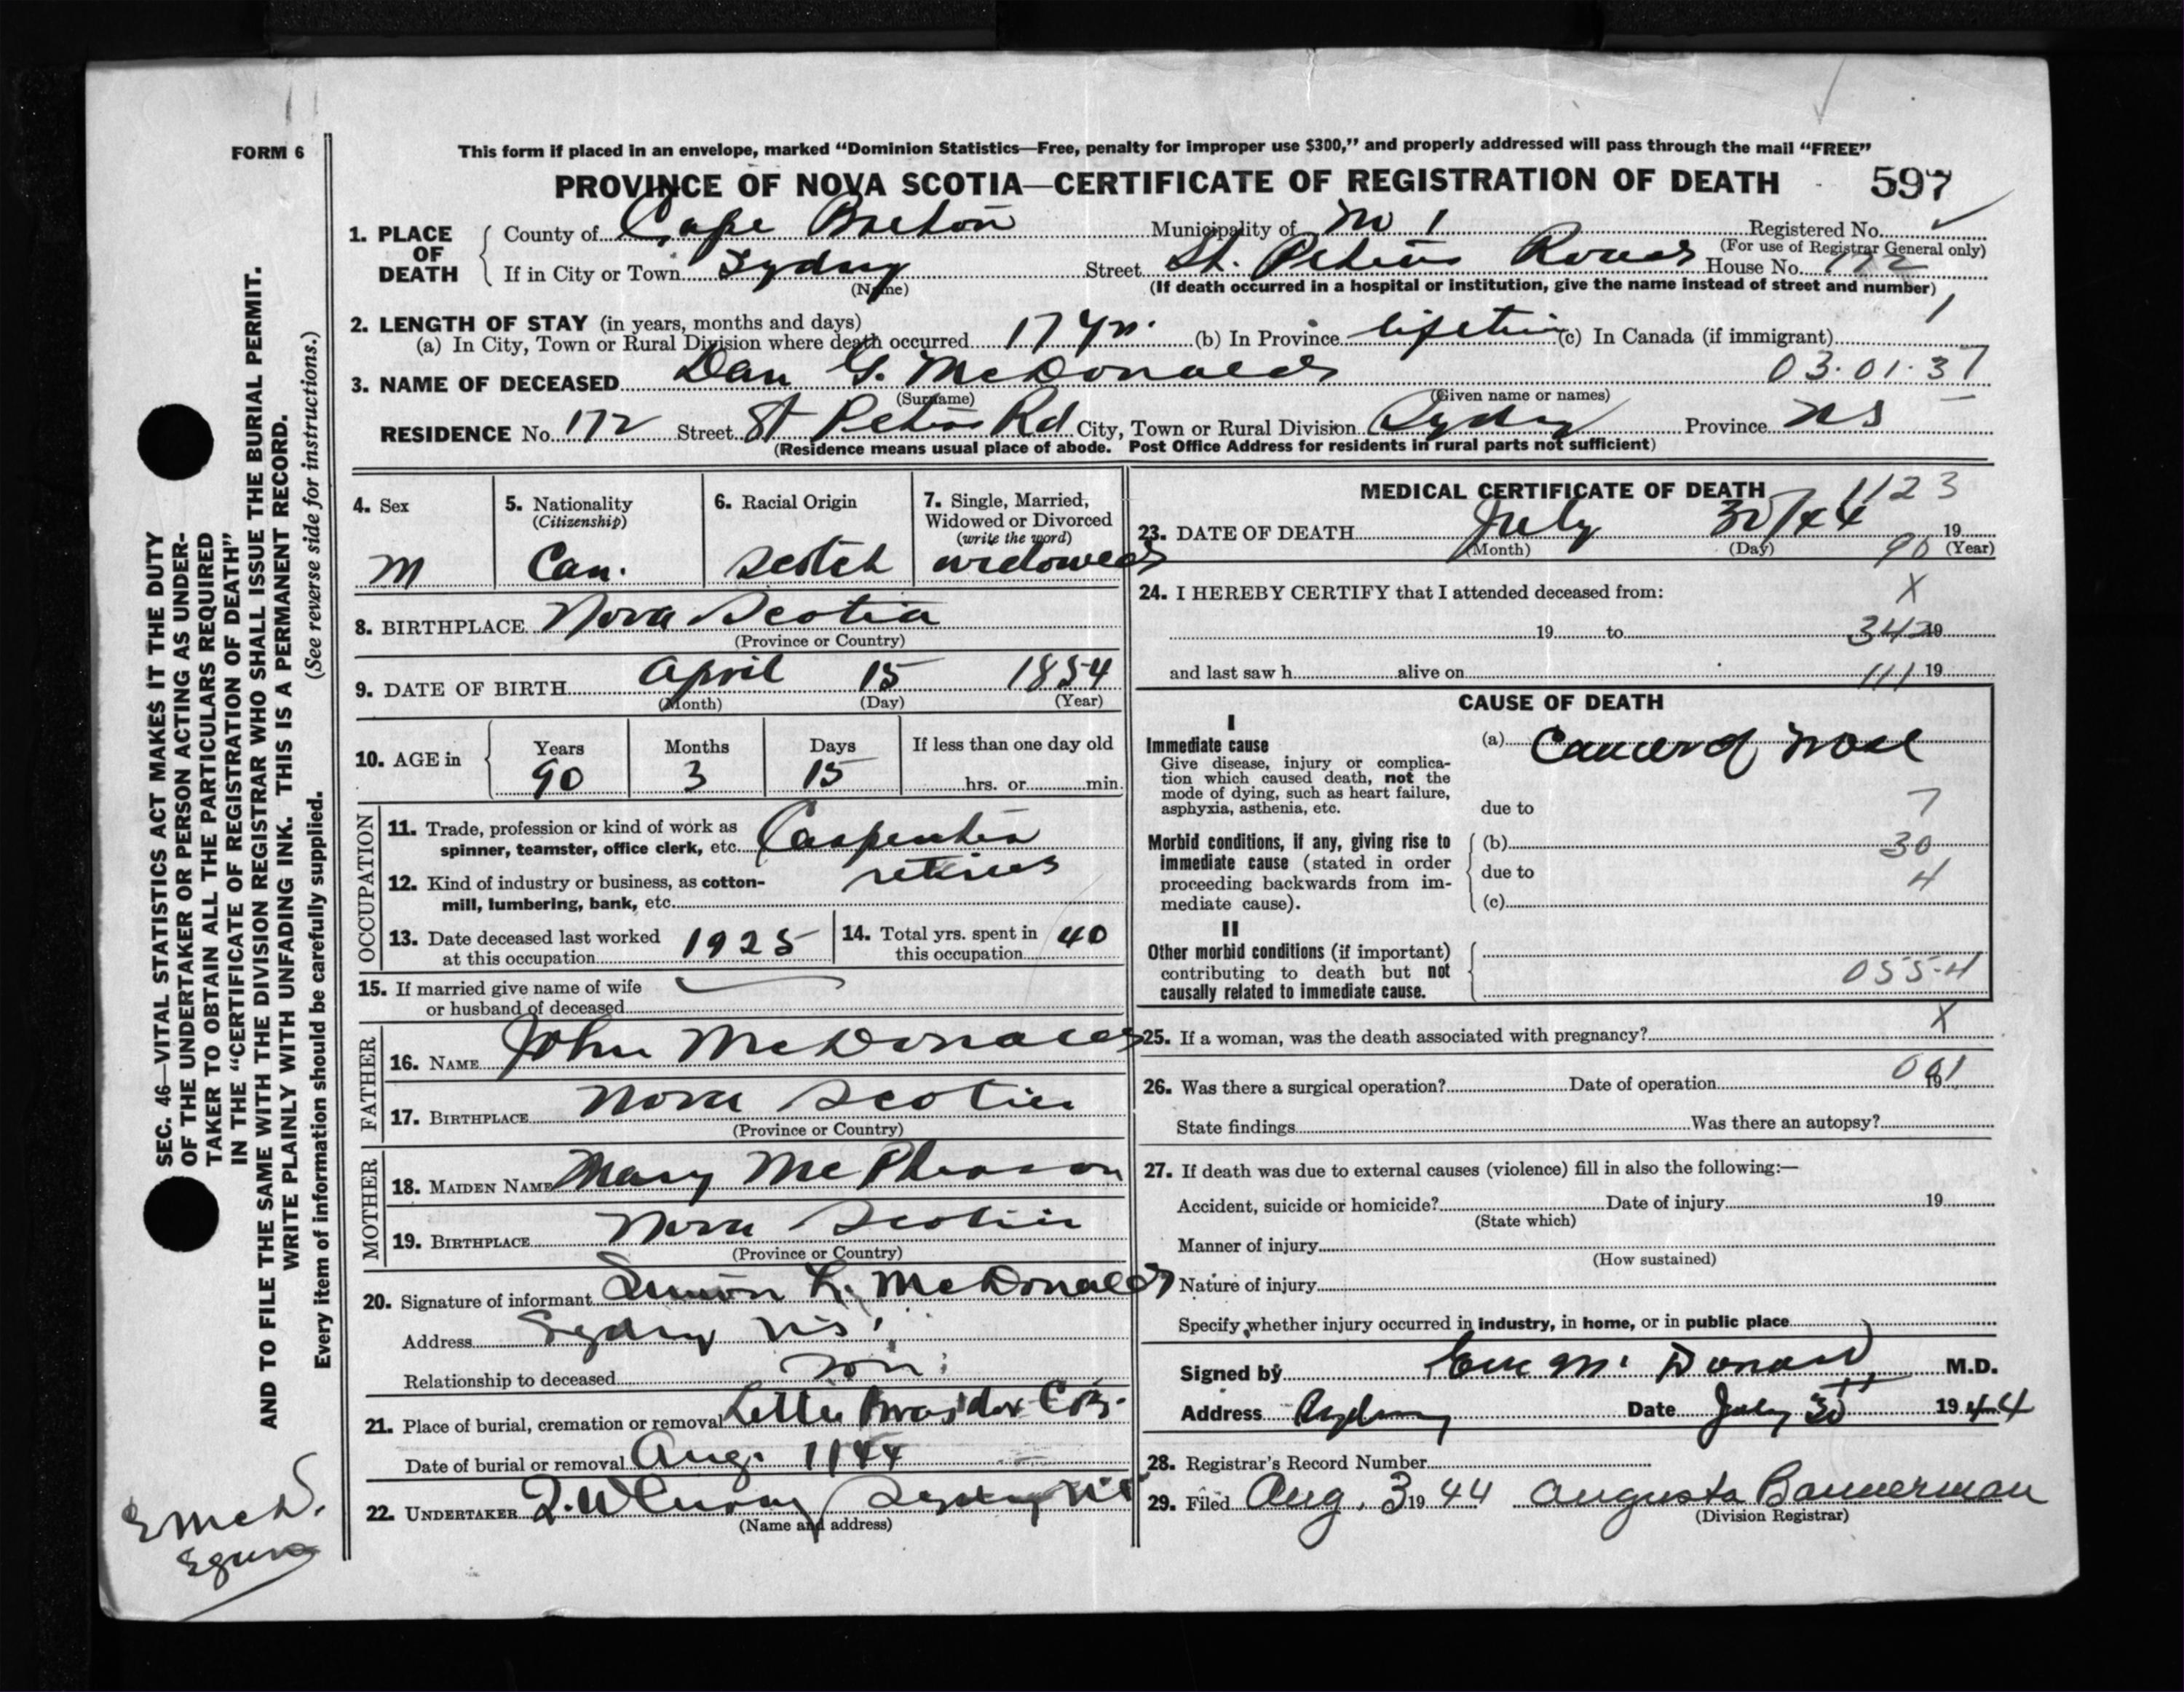 FORM 6
This form if placed in an envelope, marked “Dominion Statistics—Free, penalty for improper use $300,” and properly addressed will pass through the mail “FREE”
PROVINCE OF NOVA SCOTIA—CERTIFICATE OF REGISTRATION OF DEATH 597
1. PLACE OF DEATH
County of Cape Breton Municipality of No 1 Registered No.
(For use of Registrar General only)
If in City or Town Sydney Street St. Peters Road House No. 172
(Name) (If death occurred in a hospital or institution, give the name instead of street and number)
1
2. LENGTH OF STAY (in years, months and days)
(a) In City, Town or Rural Division where death occurred 17 yr. (b) In Province lifetime (c) In Canada (if immigrant)
3. NAME OF DECEASED Dan G. McDonald 03.01.37
(Surname) (Given name or names)
RESIDENCE No. 172 Street St Peters Rd City, Town or Rural Division Sydney Province NS
(Residence means usual place of abode. Post Office Address for residents in rural parts not sufficient)
4. Sex
M
5. Nationality
(Citizenship)
Can.
6. Racial Origin
Scotch
7. Single, Married,
Widowed or Divorced
(write the word)
widowed
8. BIRTHPLACE Nova Scotia
(Province or Country)
9. DATE OF BIRTH April 15 1854
(Month) (Day) (Year)
10. AGE in
Years Months Days If less than one day old
90 3 15 hrs. or min.
OCCUPATION
11. Trade, profession or kind of work as
spinner, teamster, office clerk, etc. Carpenter
retired
12. Kind of industry or business, as cotton-
mill, lumbering, bank, etc.
13. Date deceased last worked
at this occupation 1925
14. Total yrs. spent in
this occupation 40
15. If married give name of wife
or husband of deceased
FATHER
16. NAME John McDonald
17. BIRTHPLACE Nova Scotia
(Province or Country)
MOTHER
18. MAIDEN NAME Mary McPherson
19. BIRTHPLACE Nova Scotia
(Province or Country)
20. Signature of informant Simon L. McDonald
Address Sydney N.S.
Relationship to deceased son
21. Place of burial, cremation or removal Little Bras d'or C.B.
Date of burial or removal Aug. 1/44
22. UNDERTAKER Sydney NS
(Name and address)
MEDICAL CERTIFICATE OF DEATH
1123
23. DATE OF DEATH July 30/44 19
(Month) (Day) (Year)
90
24. I HEREBY CERTIFY that I attended deceased from:
X
19 to 19
342
and last saw h alive on 19
111
CAUSE OF DEATH
I
Immediate cause
Give disease, injury or complica-
tion which caused death, not the
mode of dying, such as heart failure,
asphyxia, asthenia, etc.
(a) Cancer of Nose
7
due to
Morbid conditions, if any, giving rise to
immediate cause (stated in order
proceeding backwards from im-
mediate cause).
(b) 30
due to 4
(c)
II
Other morbid conditions (if important)
contributing to death but not
causally related to immediate cause.
055-4
X
25. If a woman, was the death associated with pregnancy?
26. Was there a surgical operation? Date of operation 19
State findings Was there an autopsy?
27. If death was due to external causes (violence) fill in also the following:—
Accident, suicide or homicide? Date of injury 19
(State which)
Manner of injury
(How sustained)
Nature of injury
Specify whether injury occurred in industry, in home, or in public place
Signed by McDonald M.D.
Address Sydney Date July 30 1944
28. Registrar's Record Number
29. Filed Aug. 3 1944 Augusta Bannerman
(Division Registrar)
SEC. 46—VITAL STATISTICS ACT MAKES IT THE DUTY
OF THE UNDERTAKER OR PERSON ACTING AS UNDER-
TAKER TO OBTAIN ALL THE PARTICULARS REQUIRED
IN THE “CERTIFICATE OF REGISTRATION OF DEATH”
AND TO FILE THE SAME WITH THE DIVISION REGISTRAR WHO SHALL ISSUE THE BURIAL PERMIT.
WRITE PLAINLY WITH UNFADING INK. THIS IS A PERMANENT RECORD.
Every item of information should be carefully supplied. (See reverse side for instructions.)